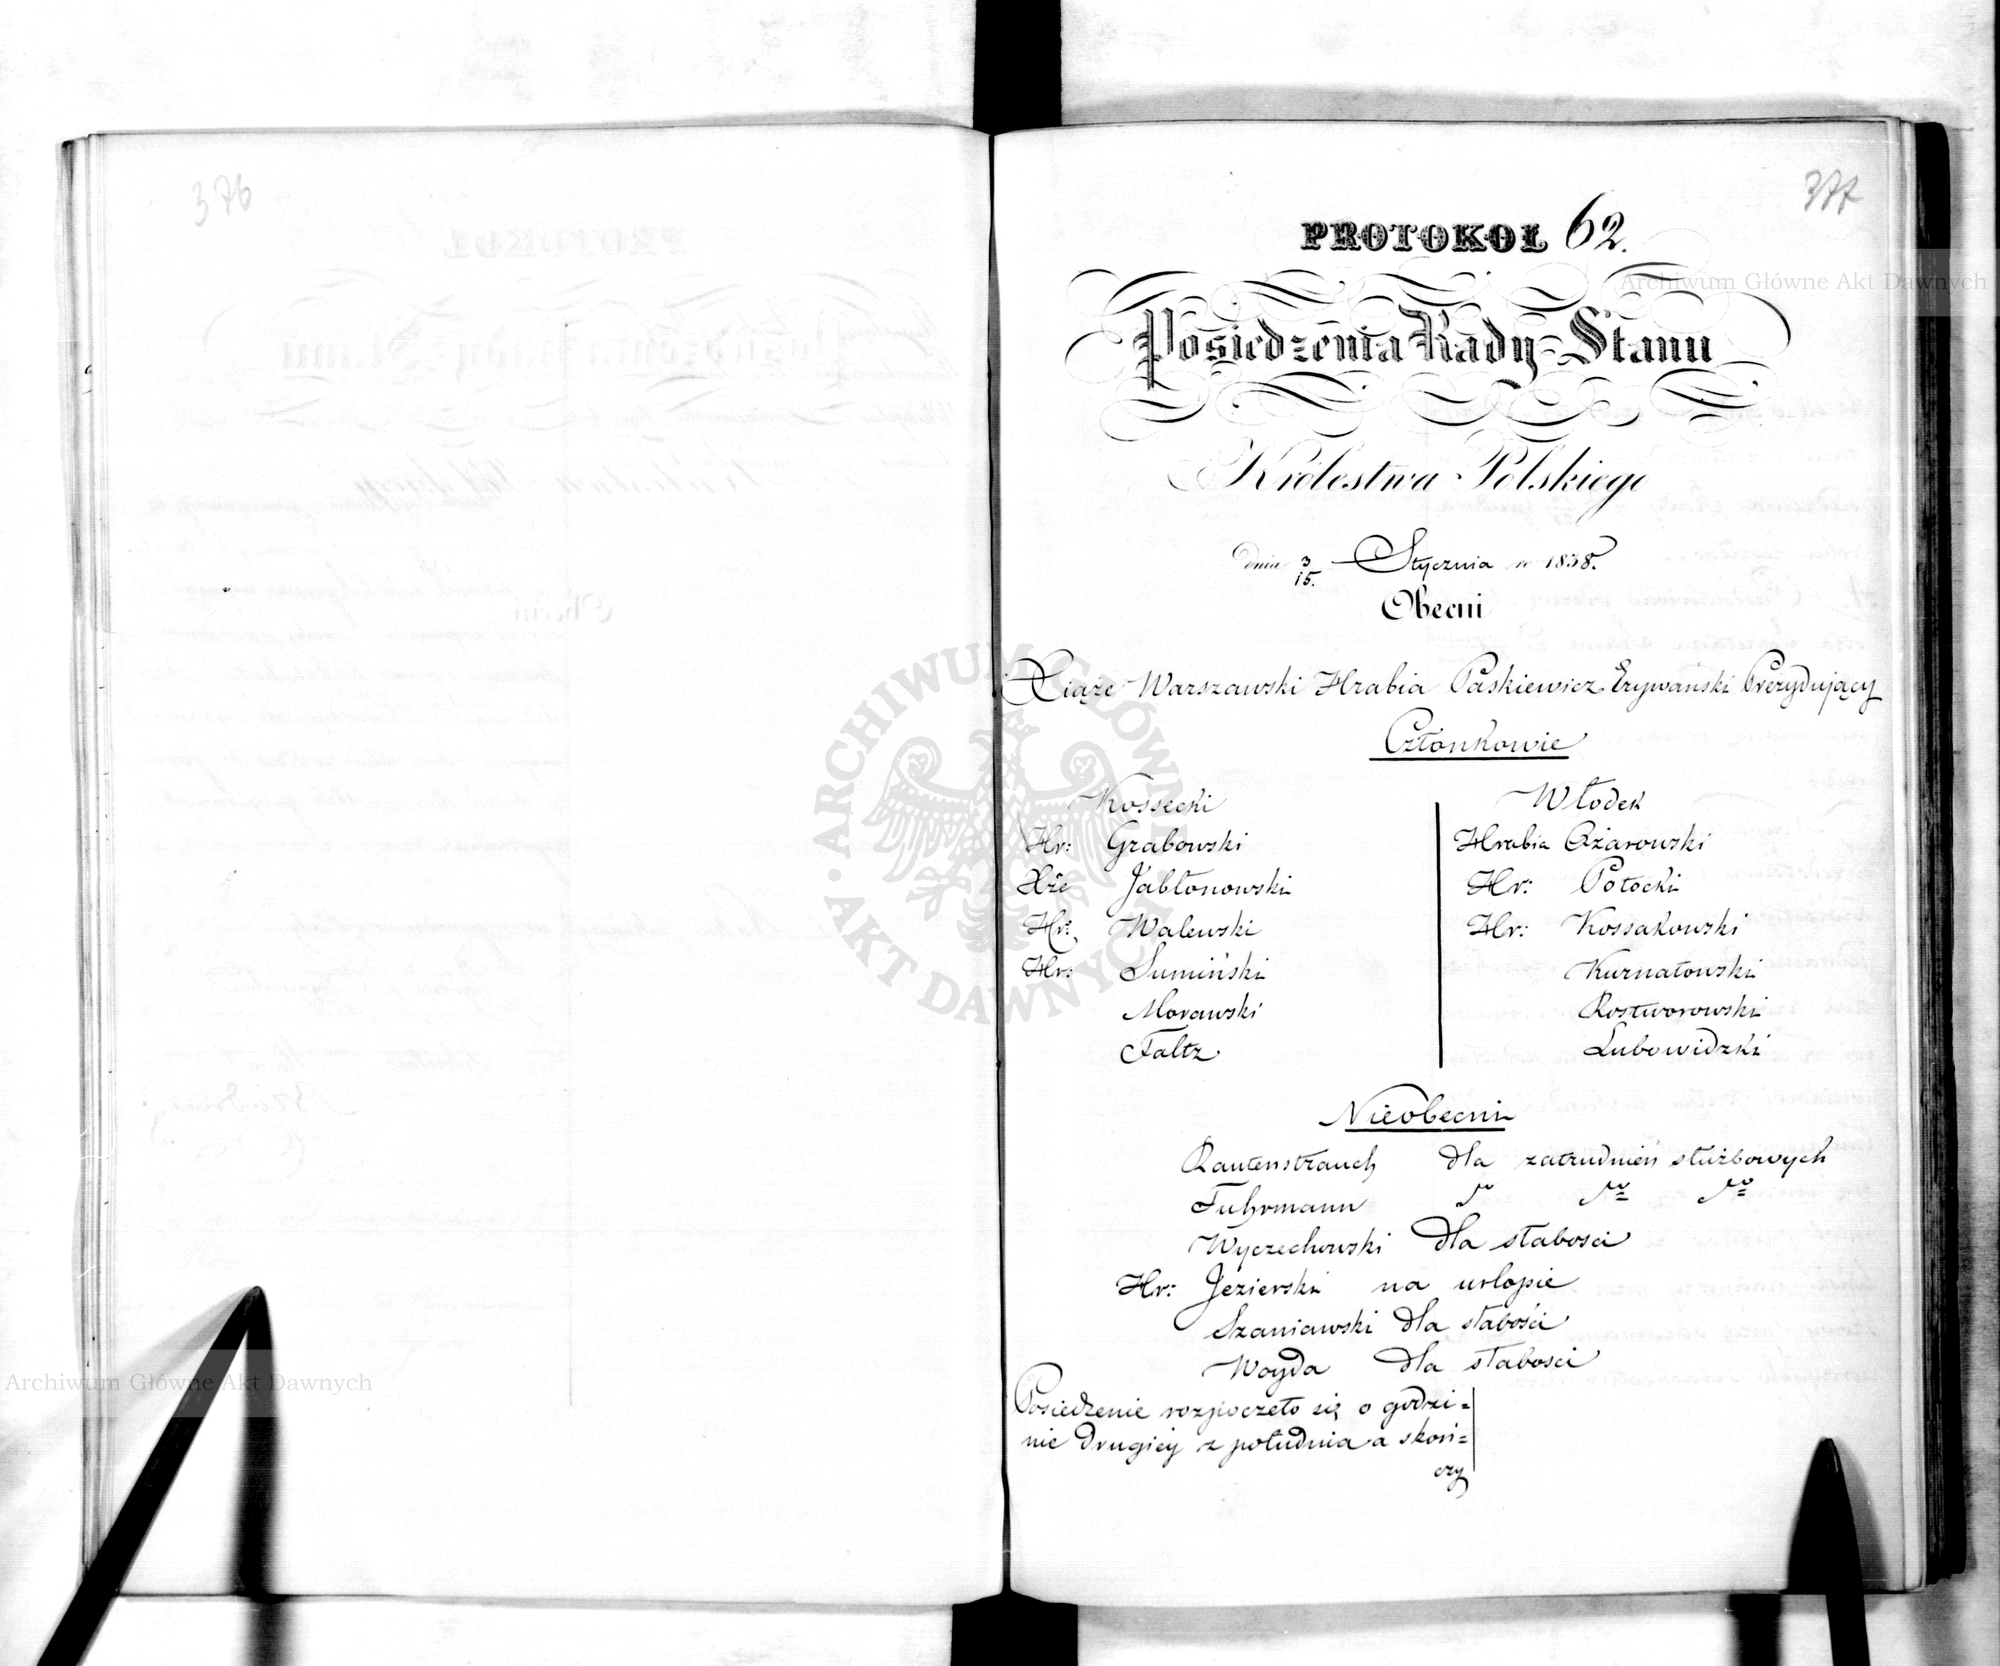 376
377
PROTOKOŁ 62.
Posiedzenia Rady Stanu
Królestwa Polskiego
dnia 3/15. Stycznia r 1838.
Obecni
Xiąże Warszawski Hrabia Paskiewicz Erywański Prezydujący
Członkowie
Kossecki
Hr: Grabowski
Xże Jabłonowski
Hr: Walewski
Hr: Sumiński
Morawski
Faltz
Włodek
Hrabia Ożarowski
Hr: Potocki
Hr: Kossakowski
Kurnatowski
Rostworowski
Lubowidzki
Nieobecni
Rautenstrauch dla zatrudnień służbowych
Fuhrmann
Wyczechowski dla słabosci
Hr: Jezierski na urlopie
Szaniawski dla słabości
Woyda dla słabosci
Posiedzenie rozpoczeło się o godzi=
nie drugiey z południa a skoń=
czy
Archiwum Główne Akt Dawnych
ARCHIWUM GŁÓWNE AKT DAWNYCH
Archiwum Główne Akt Dawnych